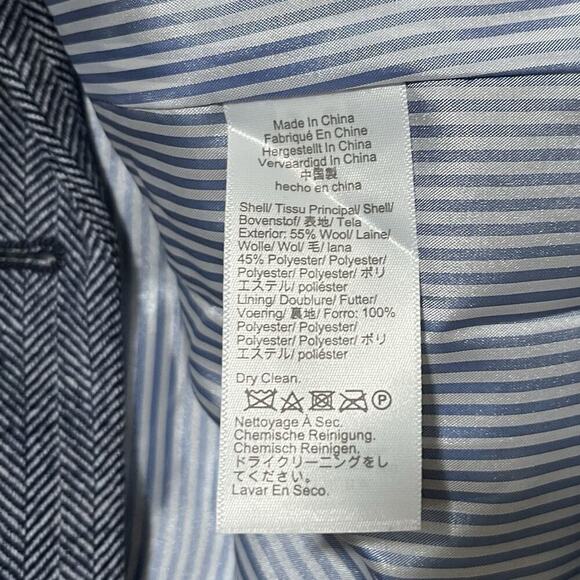 Made In China
Fabriqué En Chine
Hergestellt In China
Vervaardigd In China
中国製
hecho en china
Shell/ Tissu Principal/ Shell/
Bovenstof/ 表地/ Tela
Exterior: 55% Wool/ Laine/
Wolle/ Wol/ 毛/ lana
45% Polyester/ Polyester/
Polyester/ Polyester/ ポリ
エステル/ poliéster
Lining/ Doublure/ Futter/
Voering/ 裏地/ Forro: 100%
Polyester/ Polyester/
Polyester/ Polyester/ ポリ
エステル/ poliéster
Dry Clean.
P
Nettoyage À Sec.
Chemische Reinigung.
Chemisch Reinigen.
ドライクリーニングをし
てください。
Lavar En Seco.